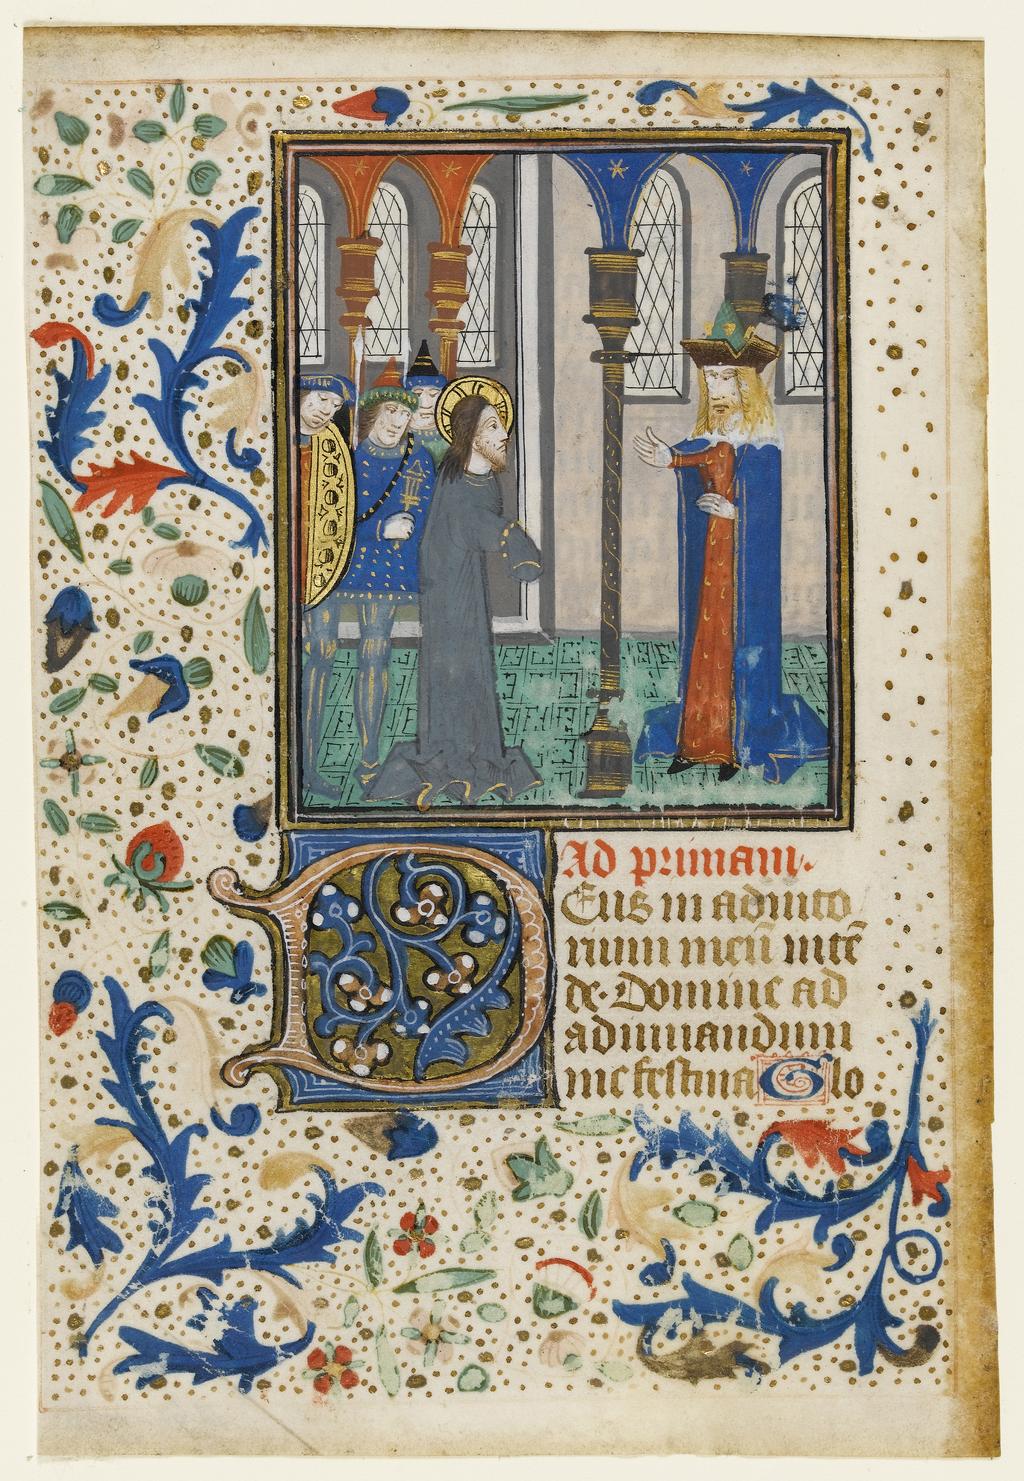 Ad primam.
Deus in adiuto
rium meū intē
de. Domine ad
adiuuandum
me festina Glo